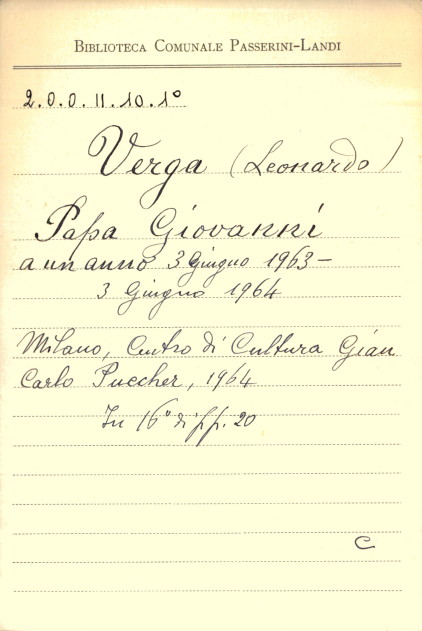 BIBLIOTECA COMUNALE PASSERINI-LANDI
2.0.0.II.10.1°
Verga (Leonardo)
Papa Giovanni
a un anno 3 Giugno 1963-
3 Giugno 1964
Milano, Centro di Cultura Gian
Carlo Puecher, 1964
In 16° di pp. 20
C